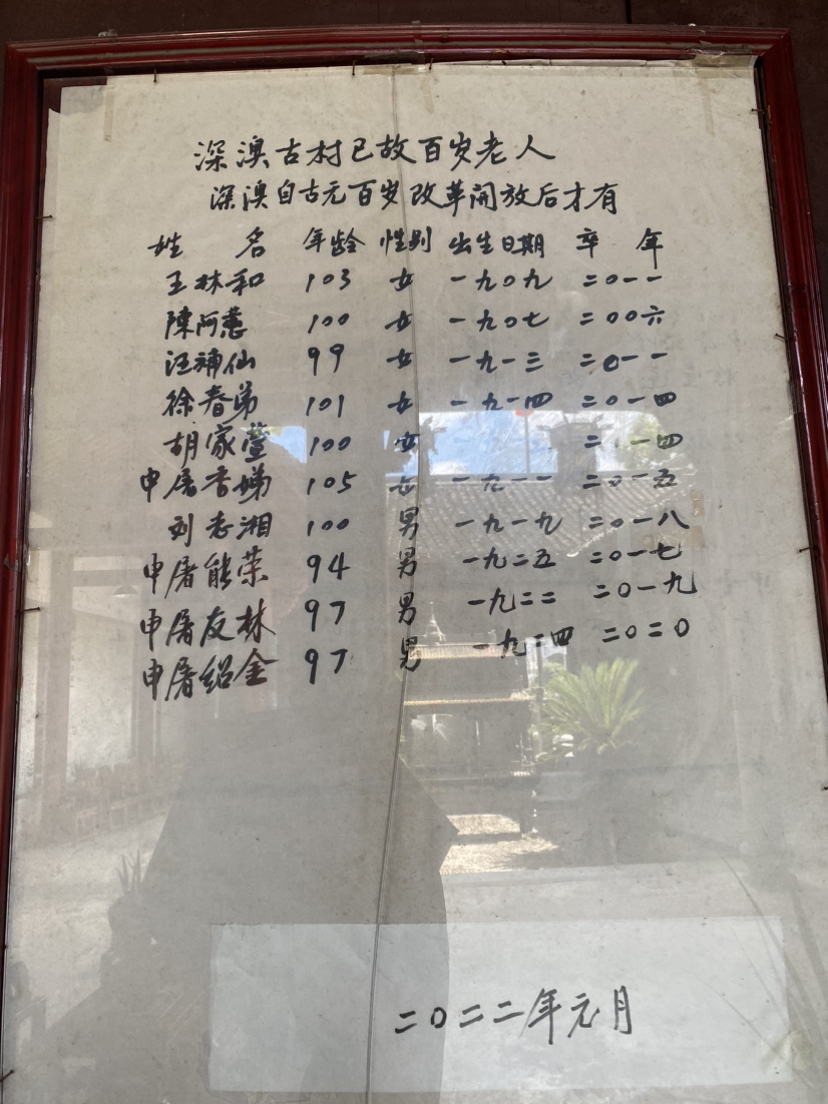 深澳古村已故百岁老人
深澳自古无百岁改革開放后才有
姓 名 年龄 性别 出生日期 卒 年
王林和 103 女 一九0九 二0一一
陳阿蕙 100 女 一九0七 二00六
汪補仙 99 女 一九一三 二0一一
徐春弟 101 女 一九一四 二0一四
胡家萱 100 女 二0一四
申屠香娣 105 女 一九一一 二0一五
刘志湘 100 男 一九一九 二0一八
申屠能荣 94 男 一九二五 二0一七
申屠友林 97 男 一九二二 二0一九
申屠绍金 97 男 一九二四 二0二0
二0二二年元月